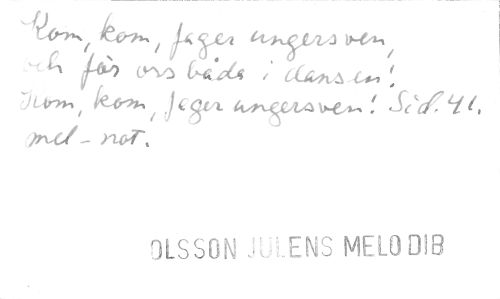 Kom, kom, fager ungersven,
och för oss båda i dansen!
Kom, kom, fager ungersven! Sid. 41.
mel-not.
OLSSON JULENS MELODIB